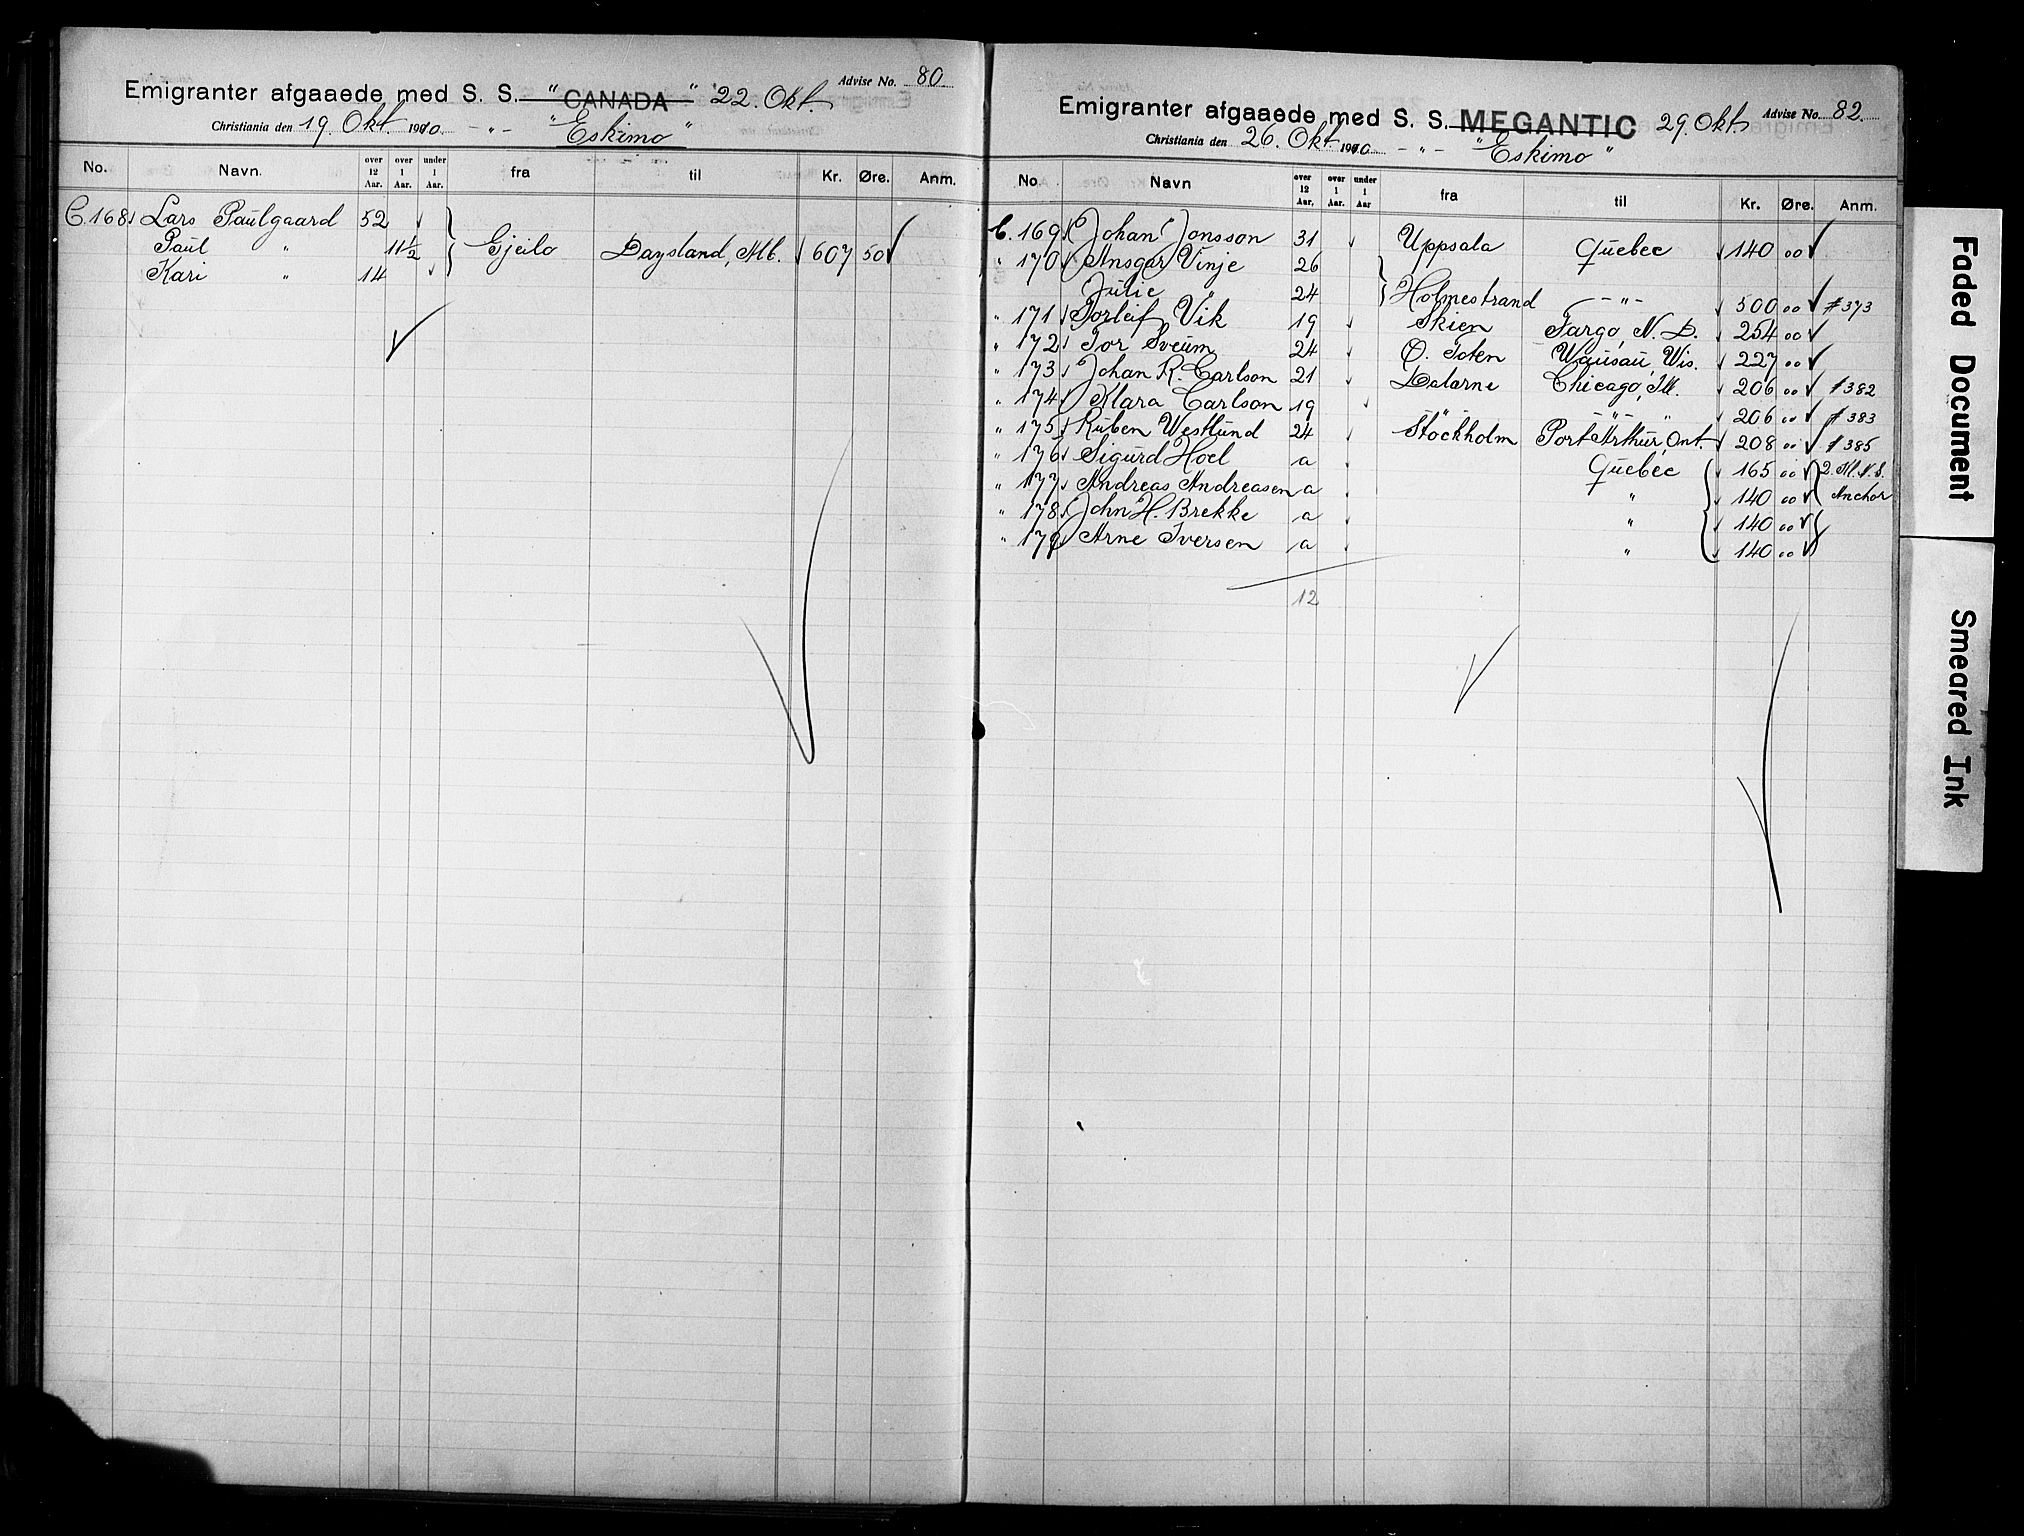 Emigranter afgaaede med S. S. "CANADA" 22. Okt. Advise No. 80
Christiania den 19. Okt. 1910. - " - "Eskimo"
No. Navn. over 12 Aar. over 1 Aar. under 1 Aar. fra til Kr. Øre. Anm.
C.168 Lars Paulgaard 52
Paul " 11½ Gjeilo Daysland, Alb. 607 50
Kari " 14
Emigranter afgaaede med S. S. MEGANTIC 29. Okt. Advise No. 82
Christiania den 26. Okt. 1910 - " - "Eskimo"
No. Navn over 12 Aar. over 1 Aar. under 1 Aar fra til Kr. Øre. Anm.
C. 169 Johan Jonsson 31 Uppsala Quebec 140 00
" 170 Ansgar Vinje 26
Julie " 24 Holmestrand - " - 500 00 #373
" 171 Torleif Vik 19 Skien Fargo, N. D. 254 00
" 172 Tor Sveum 24 Ø. Toten Wausau, Wis. 227 00
" 173 Johan R. Carlson 21 Dalarne Chicago, Ill. 206 00 #382
" 174 Klara Carlson 19 " " " 206 00 #383
" 175 Ruben Westlund 24 Stockholm Port Arthur, Ont. 208 00 #385
" 176 Sigurd Hoel a Quebec 165 00
" 177 Andreas Andreasen a " 140 00 Anchor
" 178 John H. Brekke a " 140 00
" 179 Arne Iversen a " 140 00
12
Faded Document
Smeared Ink